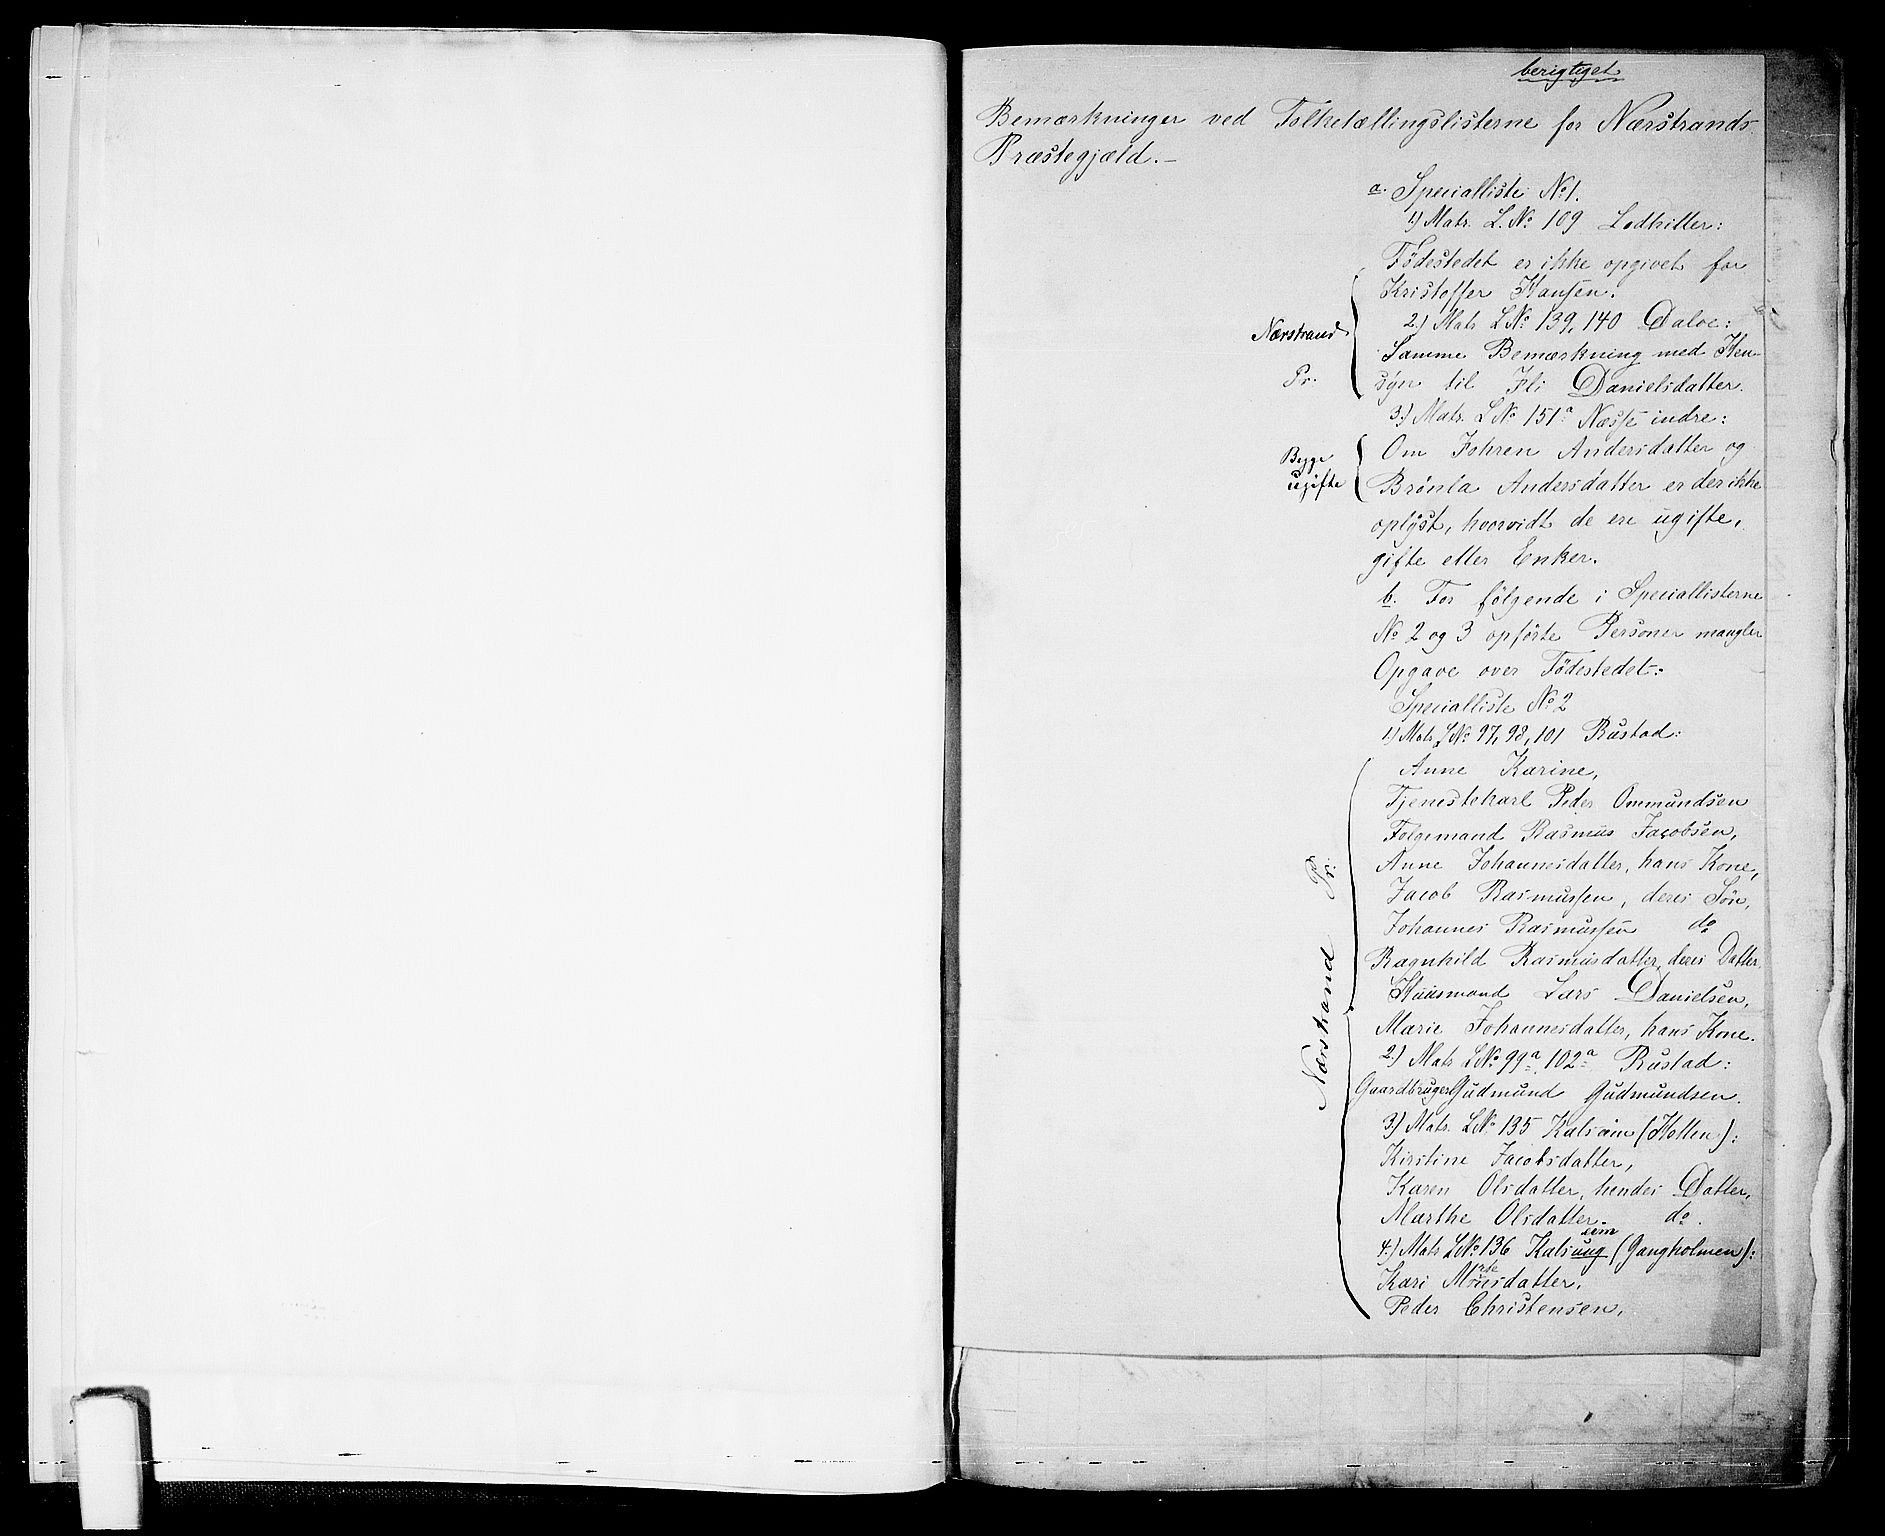 berigtiget
Bemærkninger ved Folketællingslisterne for Nærstrands
Præstegjæld.—
a. Specialliste No 1.
1) Matr. L. No 109 Lodhiller:
Födestedet er ikke opgivet for
Kristoffer Hansen.
2) Matr L No 139, 140 Dalve:
Nærstrand
Samme Bemærkning med Hen-
Pr.
syn til Eli Danielsdatter.
3) Matr. L No 151a Næsse indre:
Om Johren Andersdatter og
Begge
ugifte
Brönla Andersdatter er der ikke
oplyst, hvorvidt de ere ugifte,
gifte eller Enker.
b. For følgende i Speciallisterne
No 2 og 3 opførte Personer mangler
Opgave over Födestedet:
Specialliste No 2
1) Matr L No 97, 98, 101 Rustad:
Anne Karine,
Tjenestekarl Peder Ommundsen
Folgemand Rasmus Jacobsen,
Anne Johannesdatter, hans Kone,
Jacob Rasmussen, deres Sön,
Johannes Rasmussen do
Ragnhild Rasmusdatter, deres Datter,
Huusmand Lars Danielsen,
Marie Johannesdatter, hans Kone.
Nærstrand Pr:
2) Matr L No 99a, 102a Rustad:
Gaardbruger Gudmund Gudmundsen.
3) Matr. L No 135 Kalsem (Holten):
Kirstine Jacobsdatter,
Karen Olsdatter, hendes Datter,
Marthe Olsdatter. do.
4) Matr L No 136 Kalsuug (Gangholmen):
sem
Kari datter,
Peder Christensen,